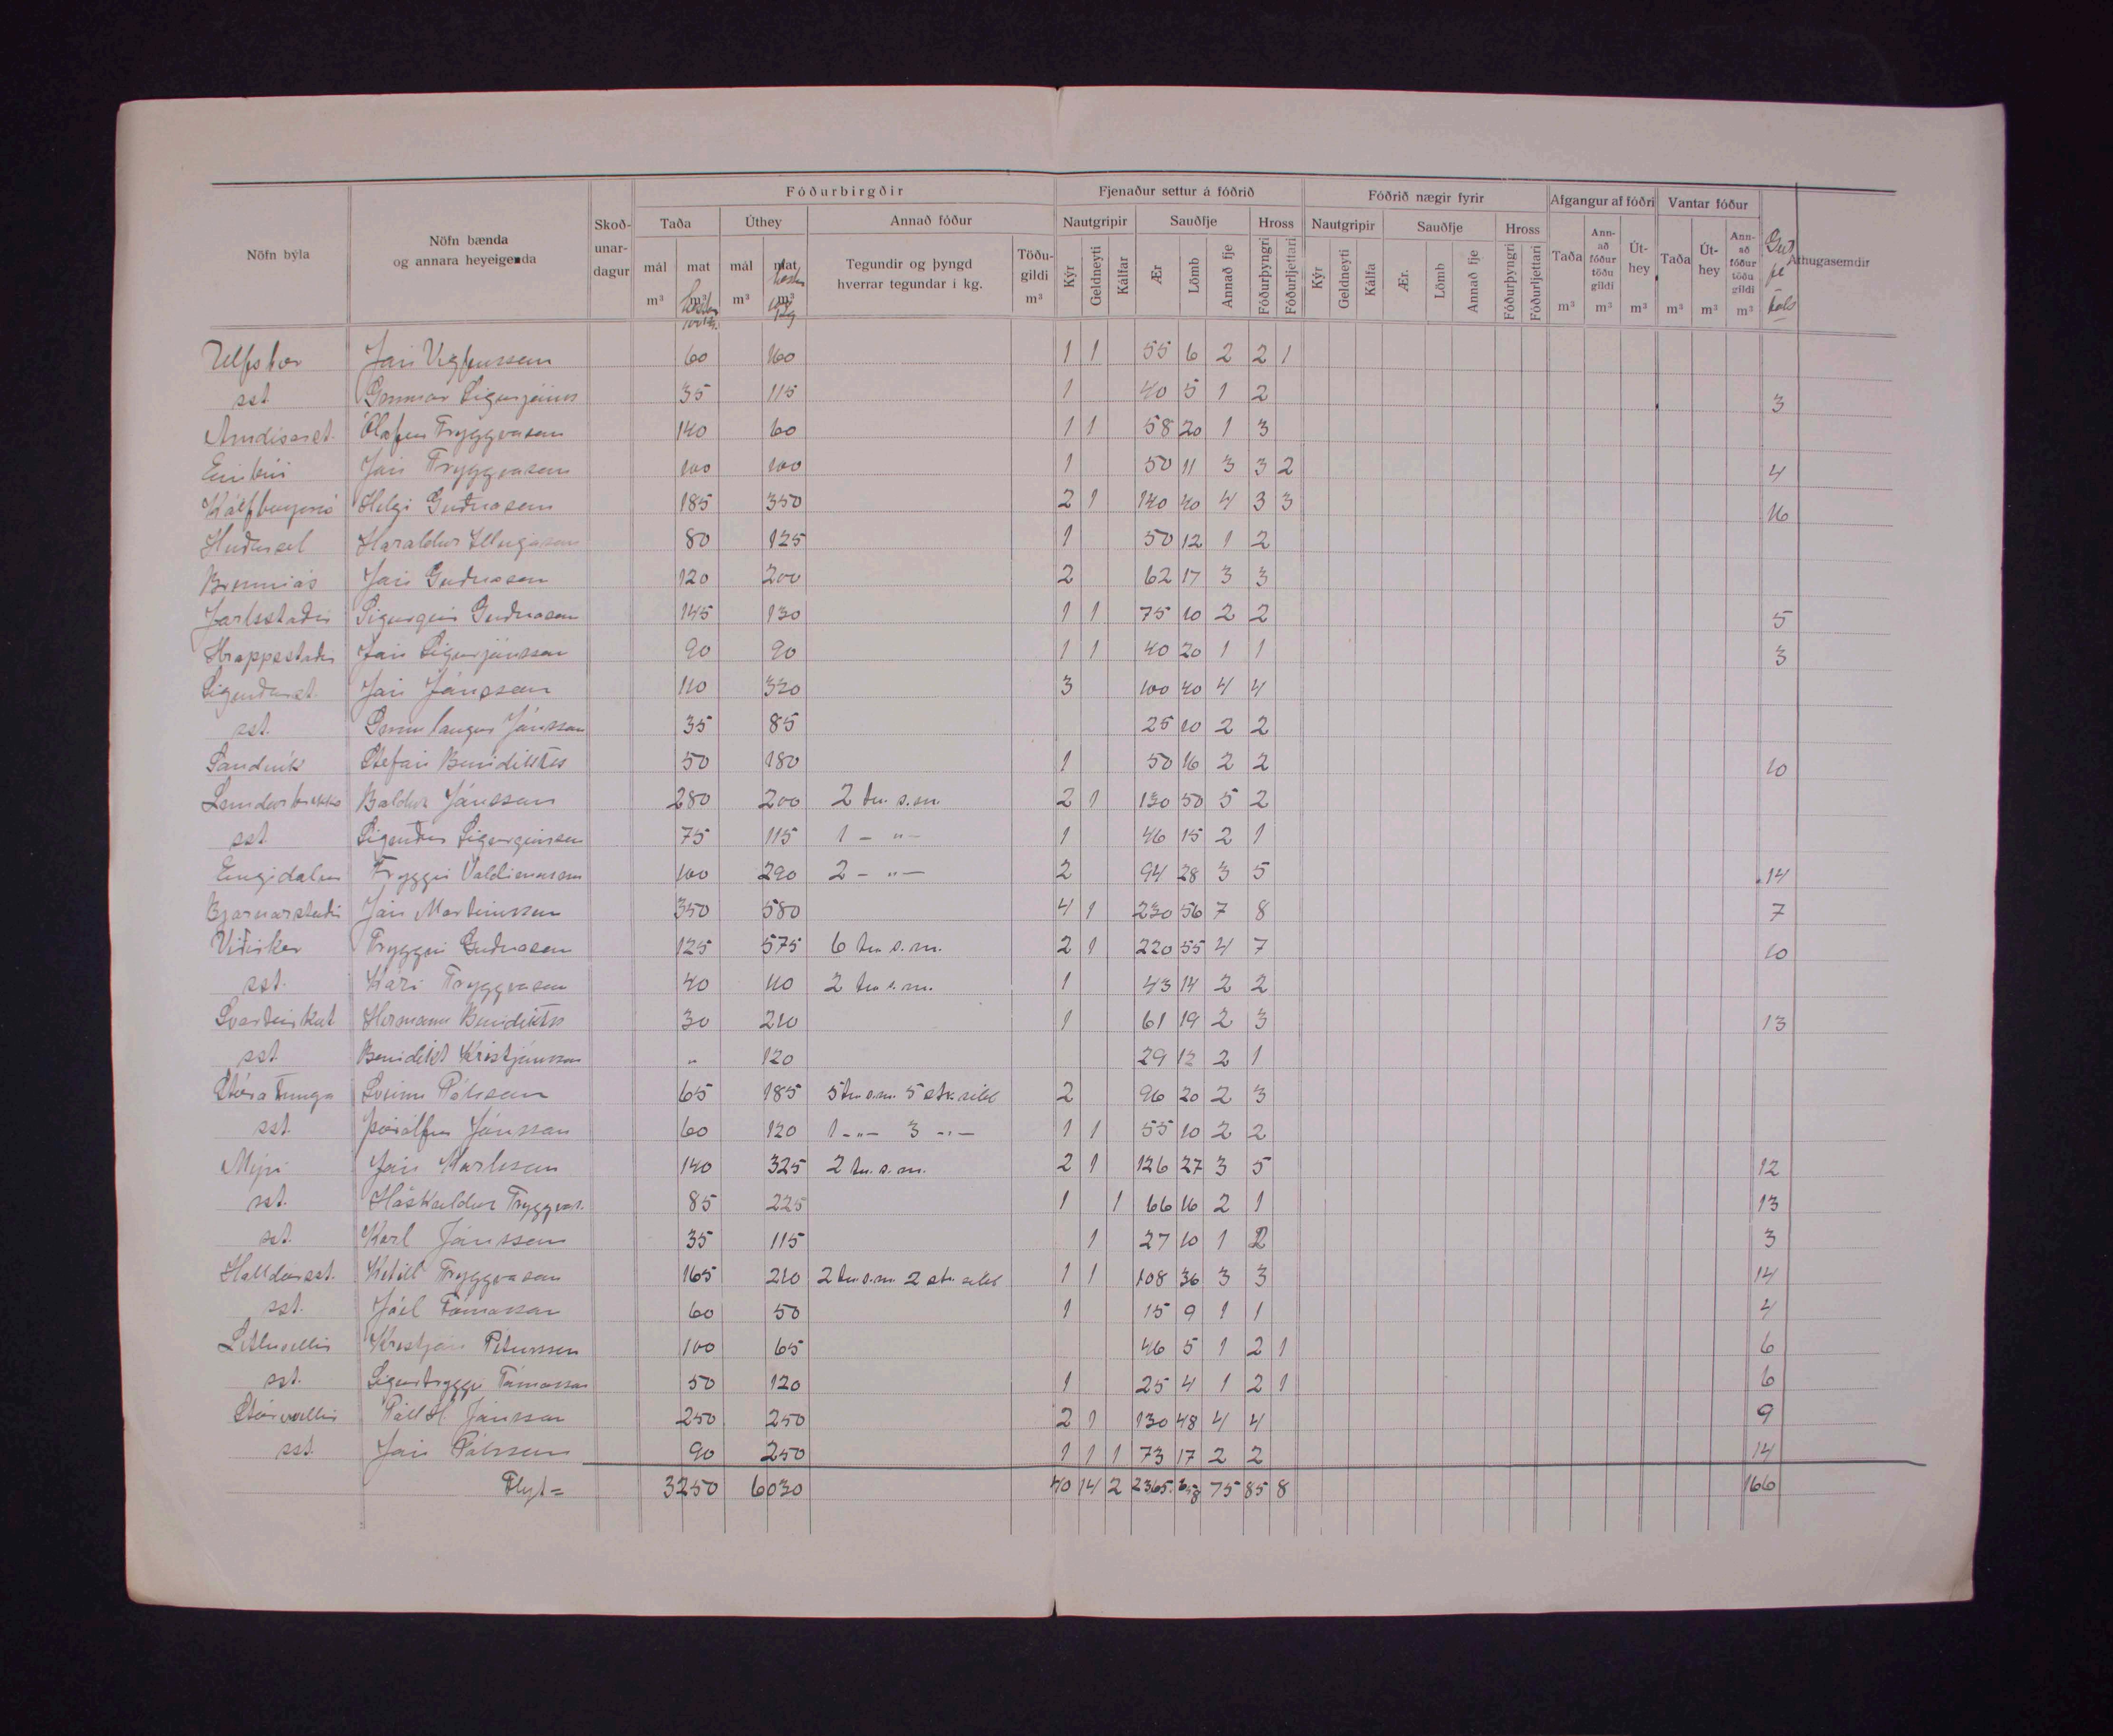 Fóðurbirgðir Fjenaður settur á fóðrið Fóðrið nægir fyrir Afgangur af fóðri Vantar fóður
Nöfn býla Nöfn bænda og annara heyeigenda Skoð-unar-dagur Taða Úthey Annað fóður Nautgripir Sauðfje Hross Nautgripir Sauðfje Hross Taða Ann-að fóður töðu gildi Út-hey Taða Út-hey Ann-að fóður töðu gildi Athugasemdir
mál mat mál mat Tegundir og þyngd hverrar tegundar í kg. Töðu-gildi Kýr Geldneyti Kálfar Ær Lömb Annað fje Fóðurþyngri Fóðurljettari Kýr Geldneyti Kálfa Ær. Lömb Annað fje Fóðurþyngri Fóðurljettari
m³ m³ m³ m³ m³ m³ m³ m³ m³ m³ m³
Úlfsbær Jón Vigfússon 60 160 1 1 55 6 2 2 1
sst Gunnar Sigurjóns 35 115 1 40 5 1 2 3
Arndísarst. Ólafur Tryggvason 140 60 1 1 58 20 1 3
Einbúi Jón Tryggvason 100 100 1 50 11 3 3 2 4
Helgi Guðnason 185 350 2 1 140 40 4 3 3 16
Hlíðarsel Haraldur Illugason 80 125 1 50 12 1 2
Brenniás Jón Guðnason 120 200 2 62 17 3 3
Jarlsstaðir Sigurgeir Guðnason 145 130 1 1 75 10 2 2 5
Hrappsstaðir Jón Sigurjónsson 90 90 1 1 40 20 1 1 3
Sigurðarst. Jón Jónsson 110 320 3 100 40 4 4
sst. Gunnlaugur Jónsson 35 85 25 10 2 2
Sandvík Stefán Benidikts 50 180 1 50 16 2 2 10
Lundarbrekka Baldur Jónsson 280 200 2 tn. s.m. 2 1 130 50 5 2
sst. Sigurður Sigurgeirsson 75 115 1 - " - 1 46 15 2 1
Engidalur Tryggvi Valdimarsson 100 290 2 - " - 2 94 28 3 5 14
Bjarnarstaðir Jón Marteinsson 350 580 4 1 230 56 7 8 7
Víðirker Tryggvi Guðnason 125 575 6 tn s.m. 2 1 220 55 4 7 10
sst. Kári Tryggvason 40 110 2 tn s.m. 1 43 14 2 2
Svartárkot Hermann Benidikts 30 210 1 61 19 2 3 13
sst Benidikt Kristjánsson " 120 29 12 2 1
Stóratunga Sveinn Pálsson 65 185 5 tn s.m. 5 stk síld 2 96 20 2 3
sst. Þórólfur Jónsson 60 120 1 - " - 3 - " - 1 1 55 10 2 2
Mýri Jón Karlsson 140 325 2 tn. s.m. 2 1 126 27 3 5 12
sst. Höskuldur Tryggvas. 85 225 1 1 66 16 2 1 13
sst. Karl Jónsson 35 115 1 27 10 1 2 3
Halldórsst. Ketill Tryggvason 165 210 2 tn s.m. 2 stk síld 1 1 108 36 3 3 14
sst. Jóel Tómasson 60 50 1 15 9 1 1 4
Litluvellir Kristján Pétursson 100 65 46 5 1 2 1 6
sst. Sigurtryggvi Tómasson 50 120 1 25 4 1 2 1 6
Stóruvellir Páll H. Jónsson 250 250 2 1 130 48 4 4 9
sst. Jón Pálsson 90 250 1 1 1 73 17 2 2 14
Flyt = 3250 6030 40 14 2 2365 658 75 85 8 166